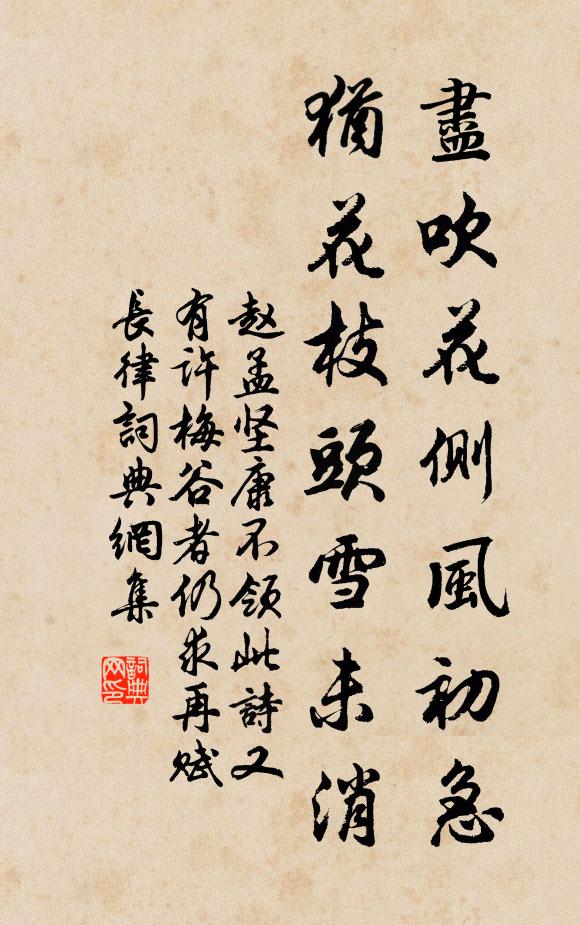 盡吹花側風初急
猶花枝頭雪未消
赵孟坚康不领此詩又
有許梅谷者仍求再赋
長律詞典網集
詞典网印